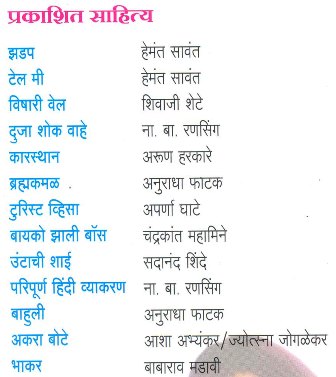 प्रकाशित साहित्य
झडप हेमंत सावंत
टेल मी हेमंत सावंत
विषारी वेल शिवाजी शेटे
दुजा शोक वाहे ना. बा. रणसिंग
कारस्थान अरूण हरकारे
ब्रह्मकमळ अनुराधा फाटक
टुरिस्ट व्हिसा अपर्णा घाटे
बायको झाली बॉस चंद्रकांत महामिने
उंटाची शाई सदानंद शिंदे
परिपूर्ण हिंदी व्याकरण ना. बा. रणसिंग
बाहुली अनुराधा फाटक
अकरा बोटे आशा अभ्यंकर/ज्योत्स्ना जोगळेकर
भाकर बाबाराव मडावी